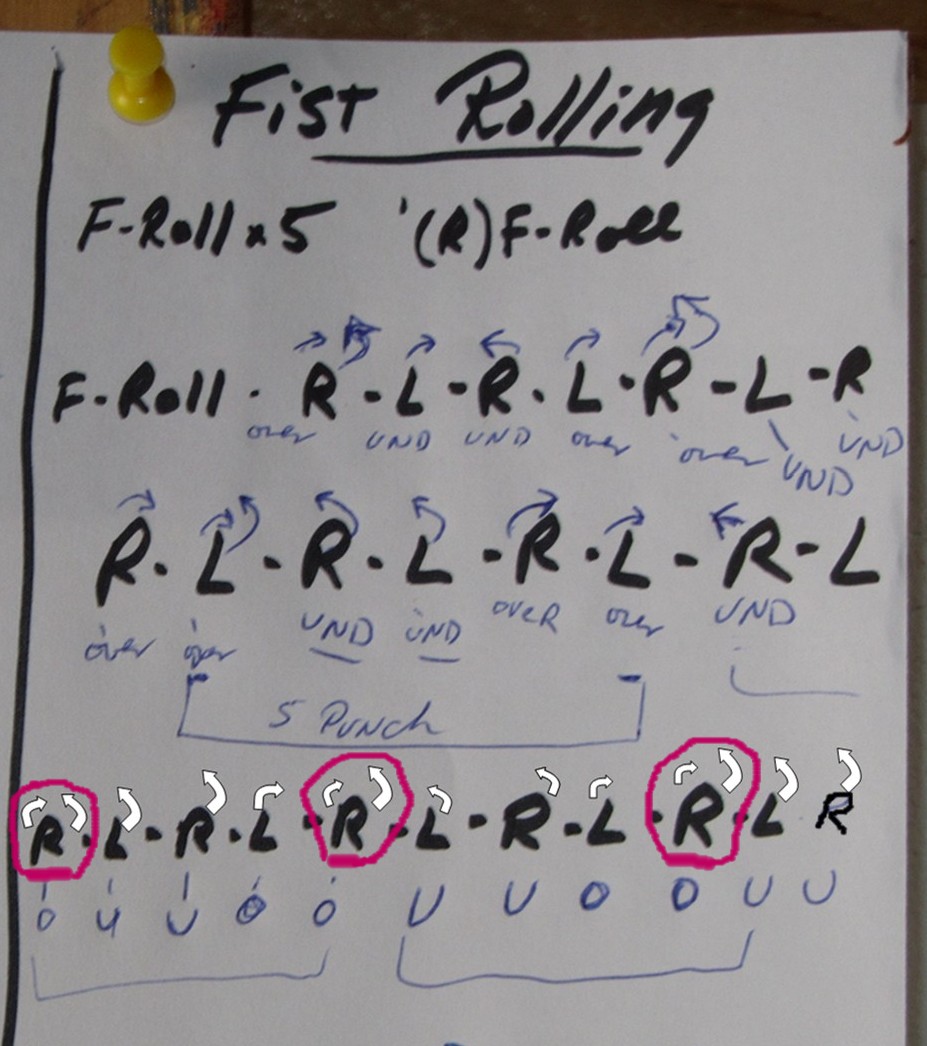 Fist Rolling
F-Roll x 5 '(R)F-Roll
F-Roll · R · L - R · L · R - L - R
over UND UND over over UND UND
R · L · R · L · R · L - R - L
over over UND UND oveR over UND
5 Punch
R · L - R · L · R · L - R · L · R · L R
O U U O O U U O O U U